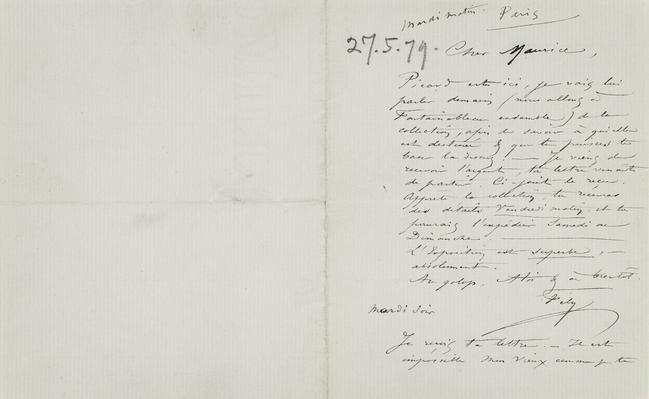 Mardi matin. Paris
27.5.79.
Cher Maurice,
Picard est ici, je vais lui
parler demain (nous allons à
Fontainebleau ensemble) de la
collection, afin de savoir à qui elle
est destinée & que tu puisses te
baser là dessus. — Je viens de
recevoir l'argent, ta lettre venait
de partir. Ci-joint le reçu.
Apprête la collection, tu recevras
des détails Vendredi matin, et tu
pourras l'expédier Samedi ou
Dimanche.
L'Exposition est superbe, —
absolument.
Au galop. A toi & à bientôt.
Mardi soir
Je reçois ta lettre. — Il est
impossible mon vieux comme je te